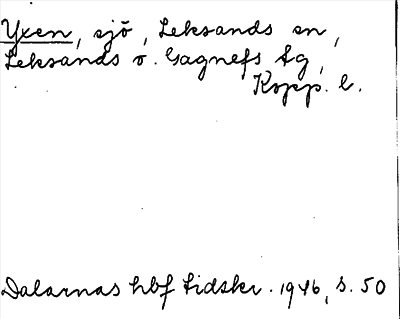 Yxen, sjö, Leksands sn,
Leksands o. Gagnefs tg,
Kopp. l.
Dalarnas hbf tidskr. 1946, s. 50